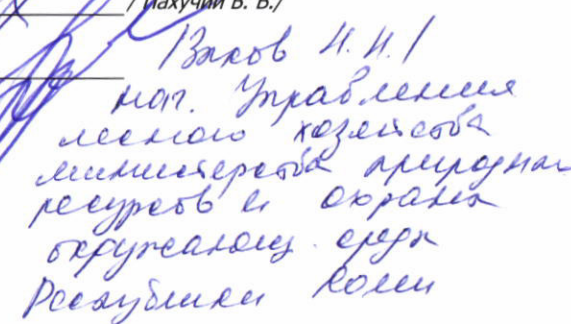 / Пахучий В. В./
/Вяков Н.Н./
нач. Управления
лесного хозяйства
министерства природных
ресурсов и охраны
окружающ. среды
Республики Коми